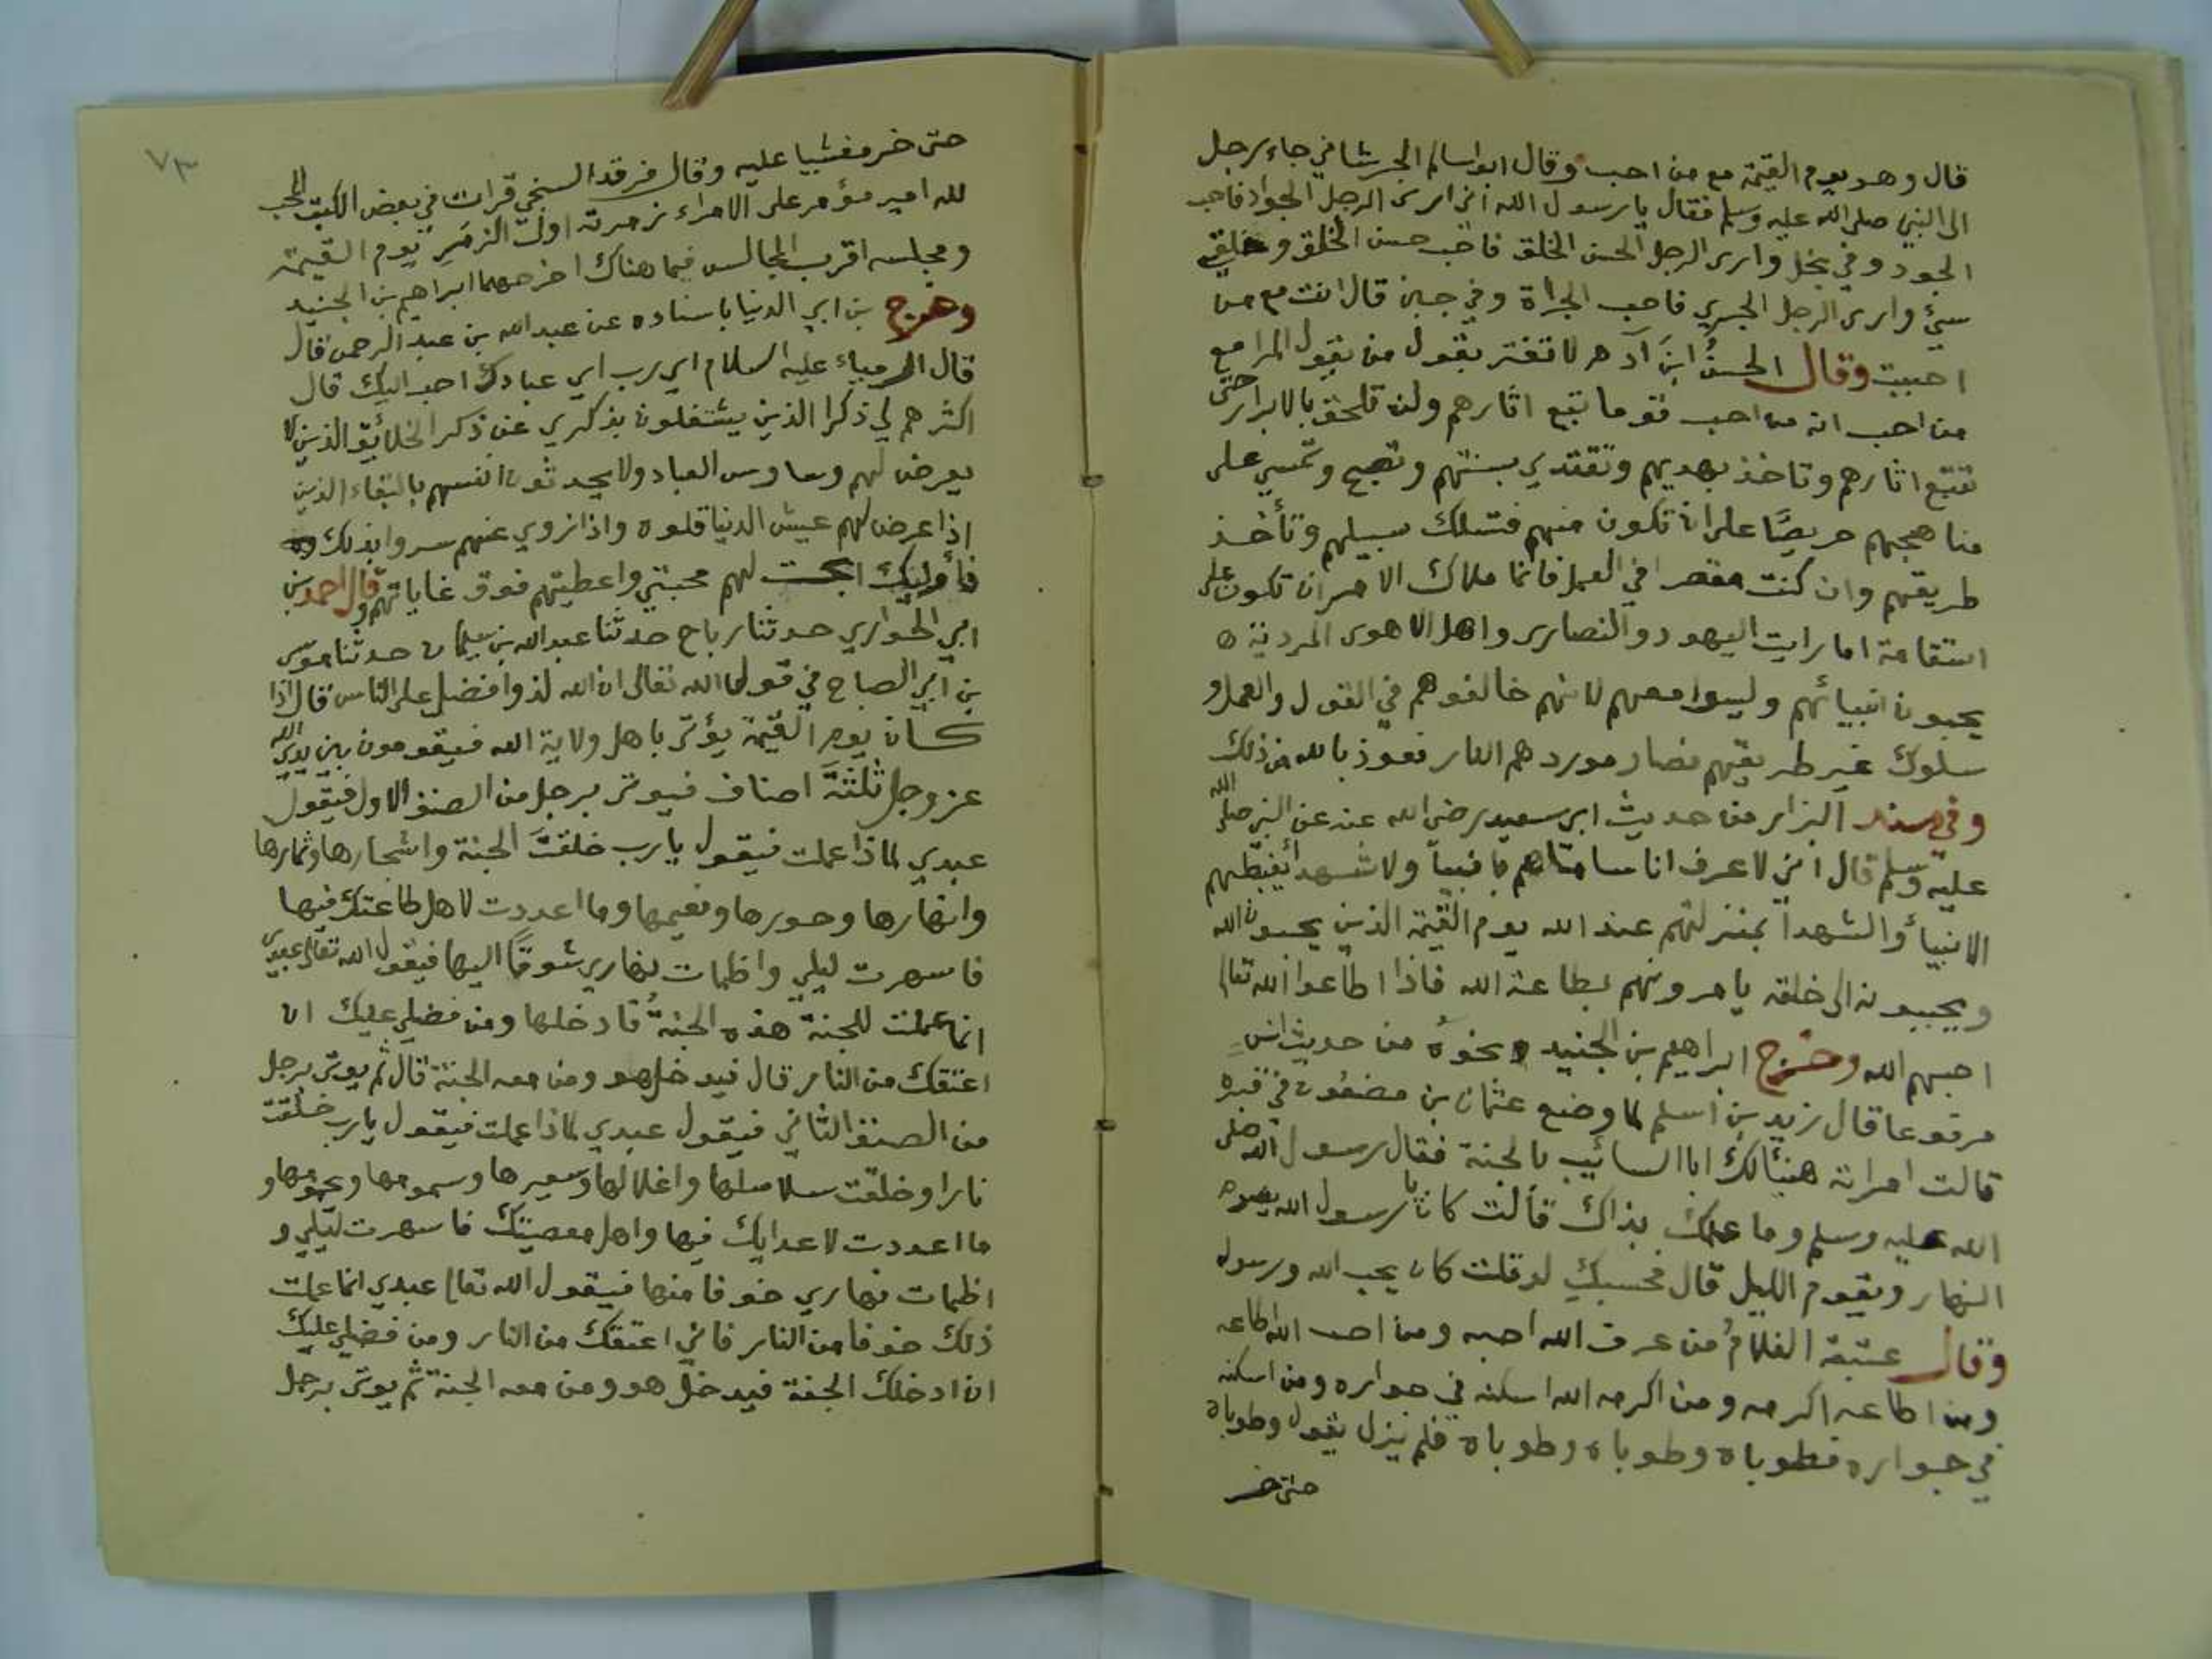 قال وهو يوم القيمة مع من احب وقال ابو سالم الجيشاني جاء رجل
الى النبي صلى الله عليه وسلم فقال يا رسول الله اني ارى الرجل الجواد فاحب
الجود وفي بخل وارى الرجل الحسن الخلق فاحب حسن الخلق وخلقي
سيئ وارى الرجل الجري فاحب الجراة وفي جبن قال انت مع من
احببت وقال الحسنُ ابنَ آدم لا تغتر بقول من يقول المرا مع
من احب انه من احب قوما تبع اثارهم ولن تلحق بالابرار حتى
تتبع اثارهم وتاخذ بهديهم وتقتدي بسنتهم وتصبح وتمسي على
مناهجهم حريصًا على ان تكون منهم فتسلك سبيلهم وتأخذ
طريقهم وان كنت مقصرا في العمل فانما ملاك الامر ان تكون على
استقامة اما رايت اليهود والنصارى واهل الاهوى المردية
يحبون انبيائهم وليسوا معهم لانهم خالفوهم في القول والعمل و
سلوك غير طريقهم فصار موردهم النار نعوذ بالله من ذلك
وفي مسند البزار من حديث ابي سعيد رضي الله عنه عن النبي صلى الله
عليه وسلم قال اني لاعرف اناسا ما هم بانبياً ولا شهدا يغبطهم
الانبيأ والشهدا بمنزلتهم عند الله يوم القيمة الذين يحبون الله
ويحببونه الى خلقه يامرونهم بطاعة الله فاذا اطاعوا الله تعالى
احبهم الله وخرج ابراهيم بن الجنيد نحوه من حديث انس
مرفوعا قال زيد بن اسلم لما وضع عثمان بن مضعون في قبره
قالت امراته هنيئا لك ابا السائب بالجنة فقال رسول الله صلى
الله عليه وسلم وما علمك بذاك قالت كان يا رسول الله يصوم
النهار ويقوم الليل قال بحسبكِ لو قلت كان يحب الله ورسوله
وقال عتبة الغلامُ من عرف الله احبه ومن احب الله اطاعه
ومن اطاعه اكرمه ومن اكرمه الله اسكنه في جواره ومن اسكنه
في جواره فطوباه وطوباه وطوباه فلم يزل يقول وطوباه
حتى خر
٧٣
حتى خر مغشيا عليه وقال فرقد السبخي قرات في بعض الكتب المحب
لله امير مؤمر على الامراء زمرته اول الزمر يوم القيمة
ومجلسه اقرب المجالس فيما هناك اخرجهما ابراهيم بن الجنيد
وخرج بن ابي الدنيا باسناده عن عبد الله بن عبد الرحمن قال
قال ارمياء عليه السلام اي رب اي عبادك احب اليك قال
اكثرهم لي ذكرا الذين يشتغلون بذكري عن ذكر الخلائق الذين لا
يعرض لهم وساوس العباد ولا يحدثون انفسهم بالبقاء الذين
اذا عرض لهم عيش الدنيا قلوه واذا زوي عنهم سروا بذلك
فأوليك ابحت لهم محبتي واعطيتهم فوق غاياتهم وقال احمد بن
ابي الحواري حدثنا رباح حدثنا عبد الله بن سليمان حدثنا موسى
بن ابي الصباح في قول الله تعالى ان الله لذوا فضل على الناس قال اذا
كان يوم القيمة يؤتى باهل ولاية الله فيقومون بين يدي الله
عز وجل ثلثة اصناف فيوتى برجل من الصنف الاول فيقول
عبدي لماذا عملت فيقول يارب خلقتَ الجنة واشجارها وثمارها
وانهارها وحورها ونعيمها وما اعددت لاهل طاعتك فيها
فاسهرت ليلي واظمات نهاري شوقًا اليها فيقول الله تعالى عبدي
انما عملت للجنة هذه الجنةُ فادخلها ومن فضلي عليك ان
اعتقك من النار قال فيدخل هو ومن معه الجنة قال ثم يوتى برجل
من الصنف الثاني فيقول عبدي لماذا عملت فيقول يارب خلقت
نارا وخلقت سلاسلها واغلالها وسعيرها وسمومها ويحمومها و
ما اعددت لاعدايك فيها واهل معصيتك فاسهرت ليلي و
اظمات نهاري خوفا منها فيقول الله تعالى عبدي انما عملت
ذلك خوفا من النار فاني اعتقك من النار ومن فضلي عليك
ان ادخلك الجنة فيدخل هو ومن معه الجنة ثم يوتى برجل